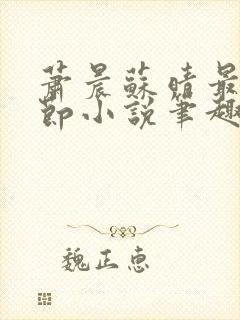 蕭晨蘇晴最
節小說筆趣
魏正惠